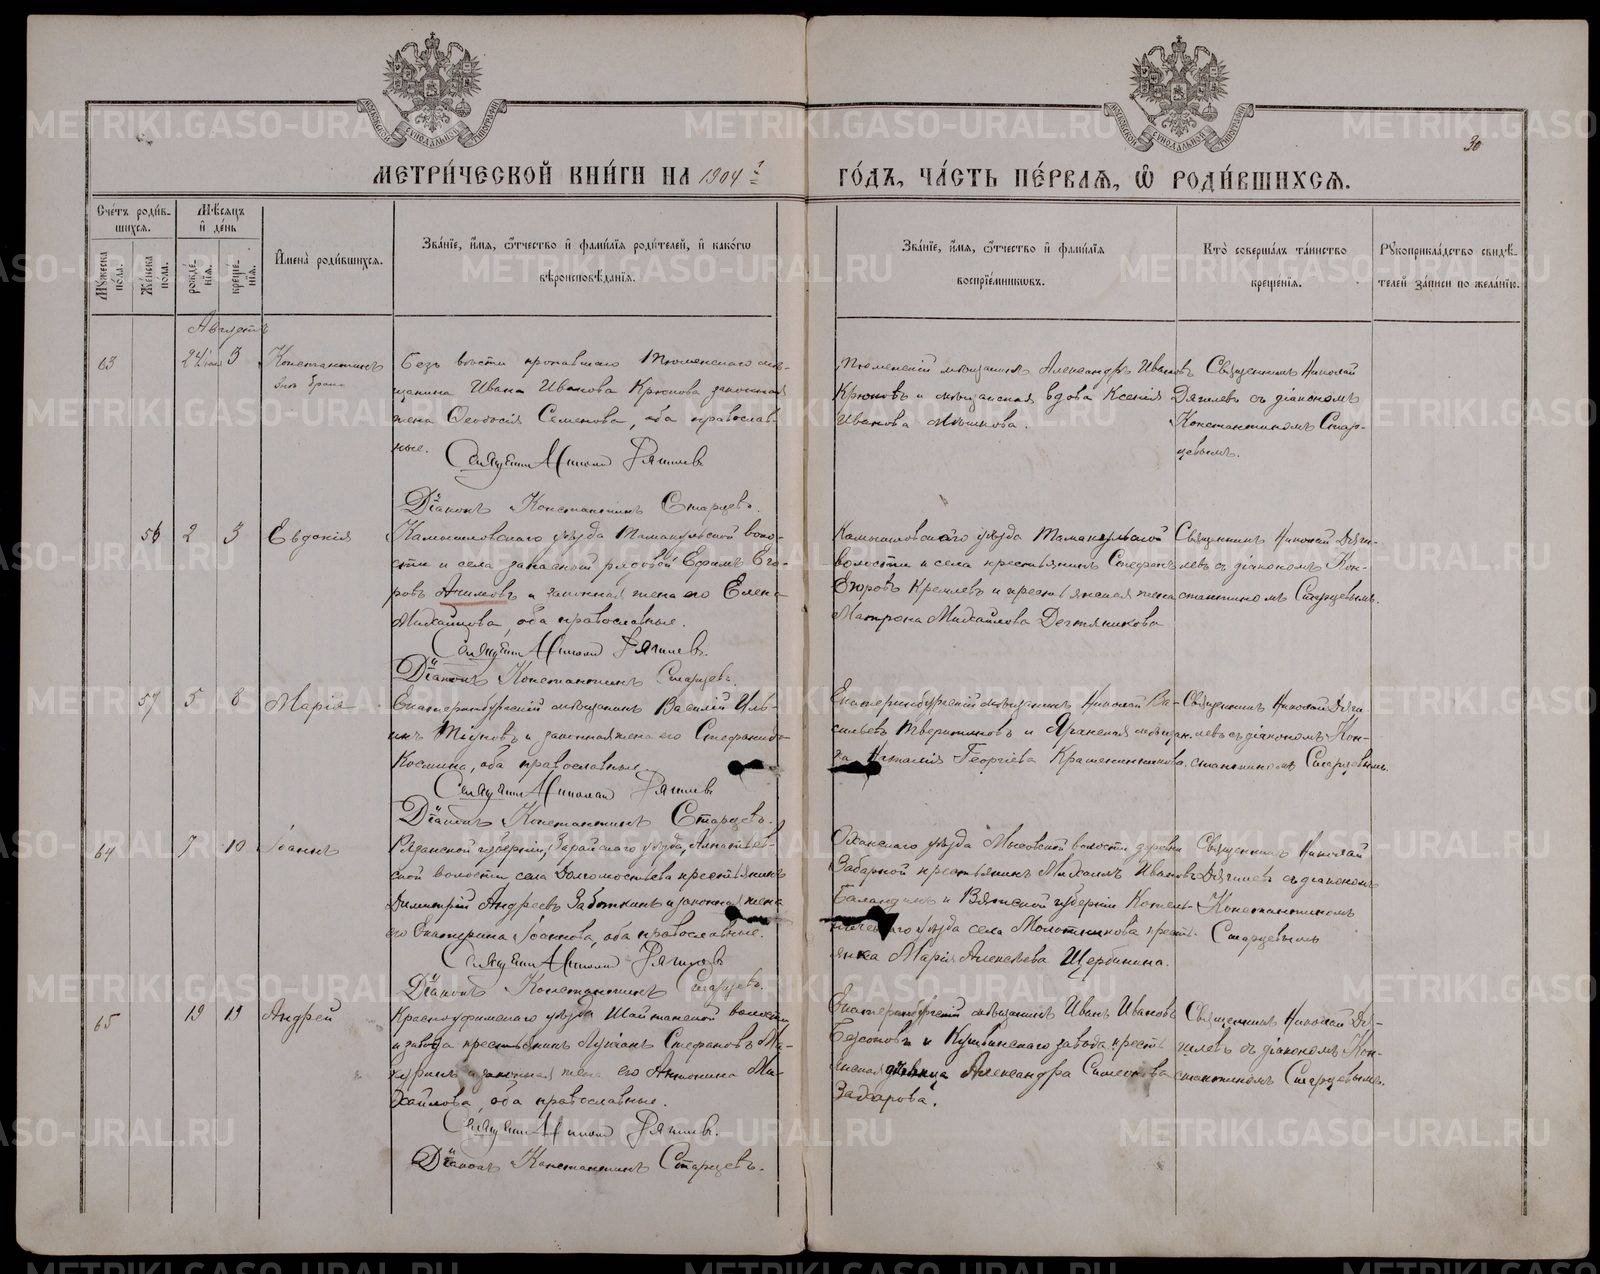 МЕТРИ́ЧЕСКОЙ КНИ́ГИ НА 1904 г.
ГО́ДЪ, ЧА́СТЬ ПЕ́РВАѦ, Ѿ РОДИ́ВШИХСѦ.
30
Сче́тъ роди́в-
шихсѧ.
Мѣ́сѧцъ
и҆ де́нь
Мꙋ́жеска по́ла.
Же́нска по́ла.
рожде́-
нїѧ.
креще́-
нїѧ.
И҆мена̀ роди́вшихсѧ.
Зва́нїе, и҆́мѧ, ѻ҆́тчество и҆ фами́лїѧ роди́телей, и҆ како́гѡ
вѣроисповѣ́данїѧ.
Зва́нїе, и҆́мѧ, ѻ҆́тчество и҆ фами́лїѧ
воспрїе́мникѡвъ.
Кто̀ соверша́лъ та́инство
креще́нїѧ.
Рꙋкоприкла́дство свидѣ́-
телей за́писи по жела́нїю.
Августъ
63 24 июл 3 Константинъ
внѣ брака
Безъ вѣсти пропавшаго Тюменскаго мѣ-
щанина Ивана Иванова Крюкова законная
жена Ѳеодосія Семенова, оба православ-
ные.
Священн. Николай Дягилевъ
Діаконъ Константинъ Старцевъ.
Тюменскій мѣщанинъ Александръ Ивановъ
Крюковъ и мѣщанская вдова Ксенія
Иванова Мѣшкова.
Священникъ Николай
Дягилевъ съ діакономъ
Константиномъ Стар-
цевымъ.
56 2 3 Евдокія
Камышловскаго уѣзда Тамакульской воло-
сти и села запасный рядовой Ефимъ Его-
ровъ Акимовъ и законная жена его Елена
Михайлова, оба православные.
Священн. Николай Дягилевъ.
Діаконъ Константинъ Старцевъ.
Камышловскаго уѣзда Тамакульской
волости и села крестьянинъ Стефанъ
Егоровъ Кремлевъ и крестьянская жена
Матрона Михайлова Дегтяникова
Священникъ Николай Дяги-
левъ съ діакономъ Кон-
стантиномъ Старцевымъ.
57 5 8 Марія
Екатеринбургскій мѣщанинъ Василій Иль-
инъ Тіуновъ и законная жена его Стефанида
Космина, оба православные.
Священн. Николай Дягилевъ
Діаконъ Константинъ Старцевъ.
Екатеринбургскій мѣщанинъ Николай Ва-
сильевъ Тверитиновъ и Яранская мѣщан-
ка Наталія Георгіева Крашенинникова.
Священникъ Николай Дяги-
левъ съ діакономъ Кон-
стантиномъ Старцевымъ.
64 7 10 Іоаннъ
Рязанской губерніи, Зарайскаго уѣзда,
ской волости села Долгомостьева крестьянинъ
Димитрій Андреевъ Заботкинъ и законная жена
его Екатерина Іоаннова, оба православные.
Священн. Николай Дягилевъ
Діаконъ Константинъ Старцевъ.
Оханскаго уѣзда Мысовской волости деревни
Забарной крестьянинъ Михаилъ Ивановъ
Баландинъ и Вятской губерніи Котель-
ническаго уѣзда села Молотникова кресть-
янка Марія Алексѣева Щербинина.
Священникъ Николай
Дягилевъ съ діакономъ
Константиномъ
Старцевымъ
65 19 19 Андрей
Красноуфимскаго уѣзда Шайтанской волости
и завода крестьянинъ Лукіанъ Стефановъ Ма-
куринъ и законная жена его Антонина Ми-
хайлова, оба православные.
Священн. Николай Дягилевъ.
Діаконъ Константинъ Старцевъ.
Екатеринбургскій мѣщанинъ Иванъ Ивановъ
Безсоновъ и Кушвинскаго завода кресть-
янская дѣвица Александра Симеонова
Захарова.
Священникъ Николай Дя-
гилевъ съ діакономъ Кон-
стантиномъ Старцевымъ.